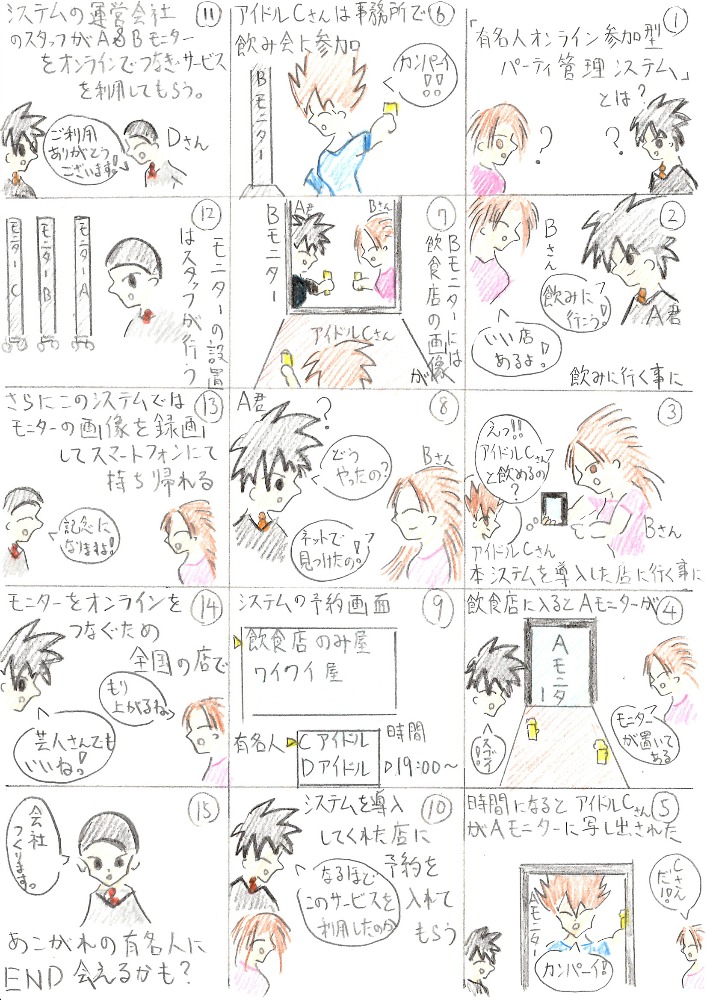 ①
「有名人オンライン参加型
パーティ管理システム」
とは?
?
?
②
Bさん
飲みに
行こう!
A君
いい店
あるよ!
飲みに行く事に
③
えっ!!
アイドルCさん
と飲めるの
?
Bさん
アイドルCさん
本システムを導入した店に行く事に
飲食店に入るとAモニターが
④
Aモニター
スゴイ!!
モニター
が置いて
ある
時間になるとアイドルCさん
⑤
がAモニターに写し出された
Cさん
だ!!
Aモニター
カンパーイ!
アイドルCさんは事務所で
⑥
飲み会に参加
カンパーイ
!!
Bモニター
⑦
Bモニターには
飲食店の画像が
A君
Bさん
Bモニター
アイドルCさん
A君
?
⑧
どう
やったの?
Bさん
ネットで
見つけたの!
システムの予約画面
⑨
飲食店のみ屋
ワイワイ屋
有名人
Cアイドル
Dアイドル
時間
19:00~
システムを導入
⑩
してくれた店に
予約を
入れて
もらう
なるほど
このサービスを
利用したのか
システムの運営会社
⑪
のスタッフがAとBモニター
をオンラインでつなぎ、サービス
を利用してもらう。
ご利用
ありがとう
ございます!
Dさん
⑫
モニターの設置
はスタッフが行う
モニターA
モニターB
モニターC
さらにこのシステムでは
⑬
モニターの画像を録画
してスマートフォンにて
持ち帰れる
記念に
なりますね!
モニターをオンラインを
⑭
つなぐため
全国の店で
もり
上がるね
芸人さんでも
いいね!
⑮
会社
つくります。
あこがれの有名人に
END 会えるかも?